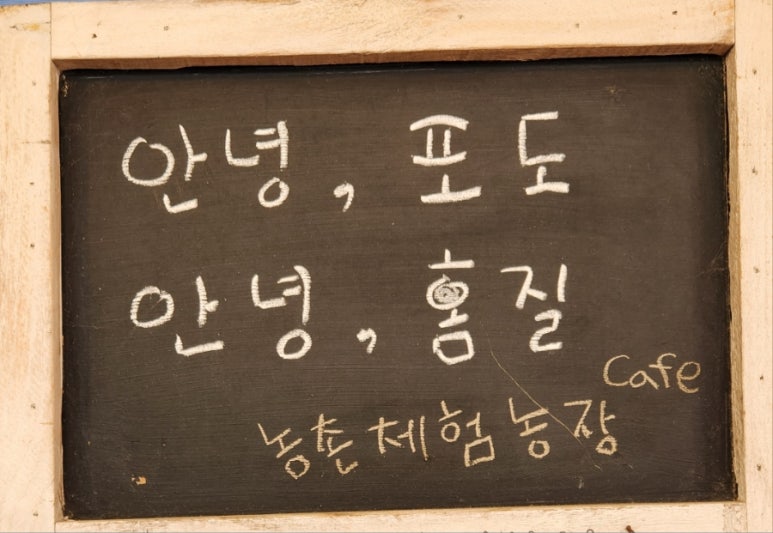 안녕, 포도
안녕, 홈질
Cafe
농촌체험농장